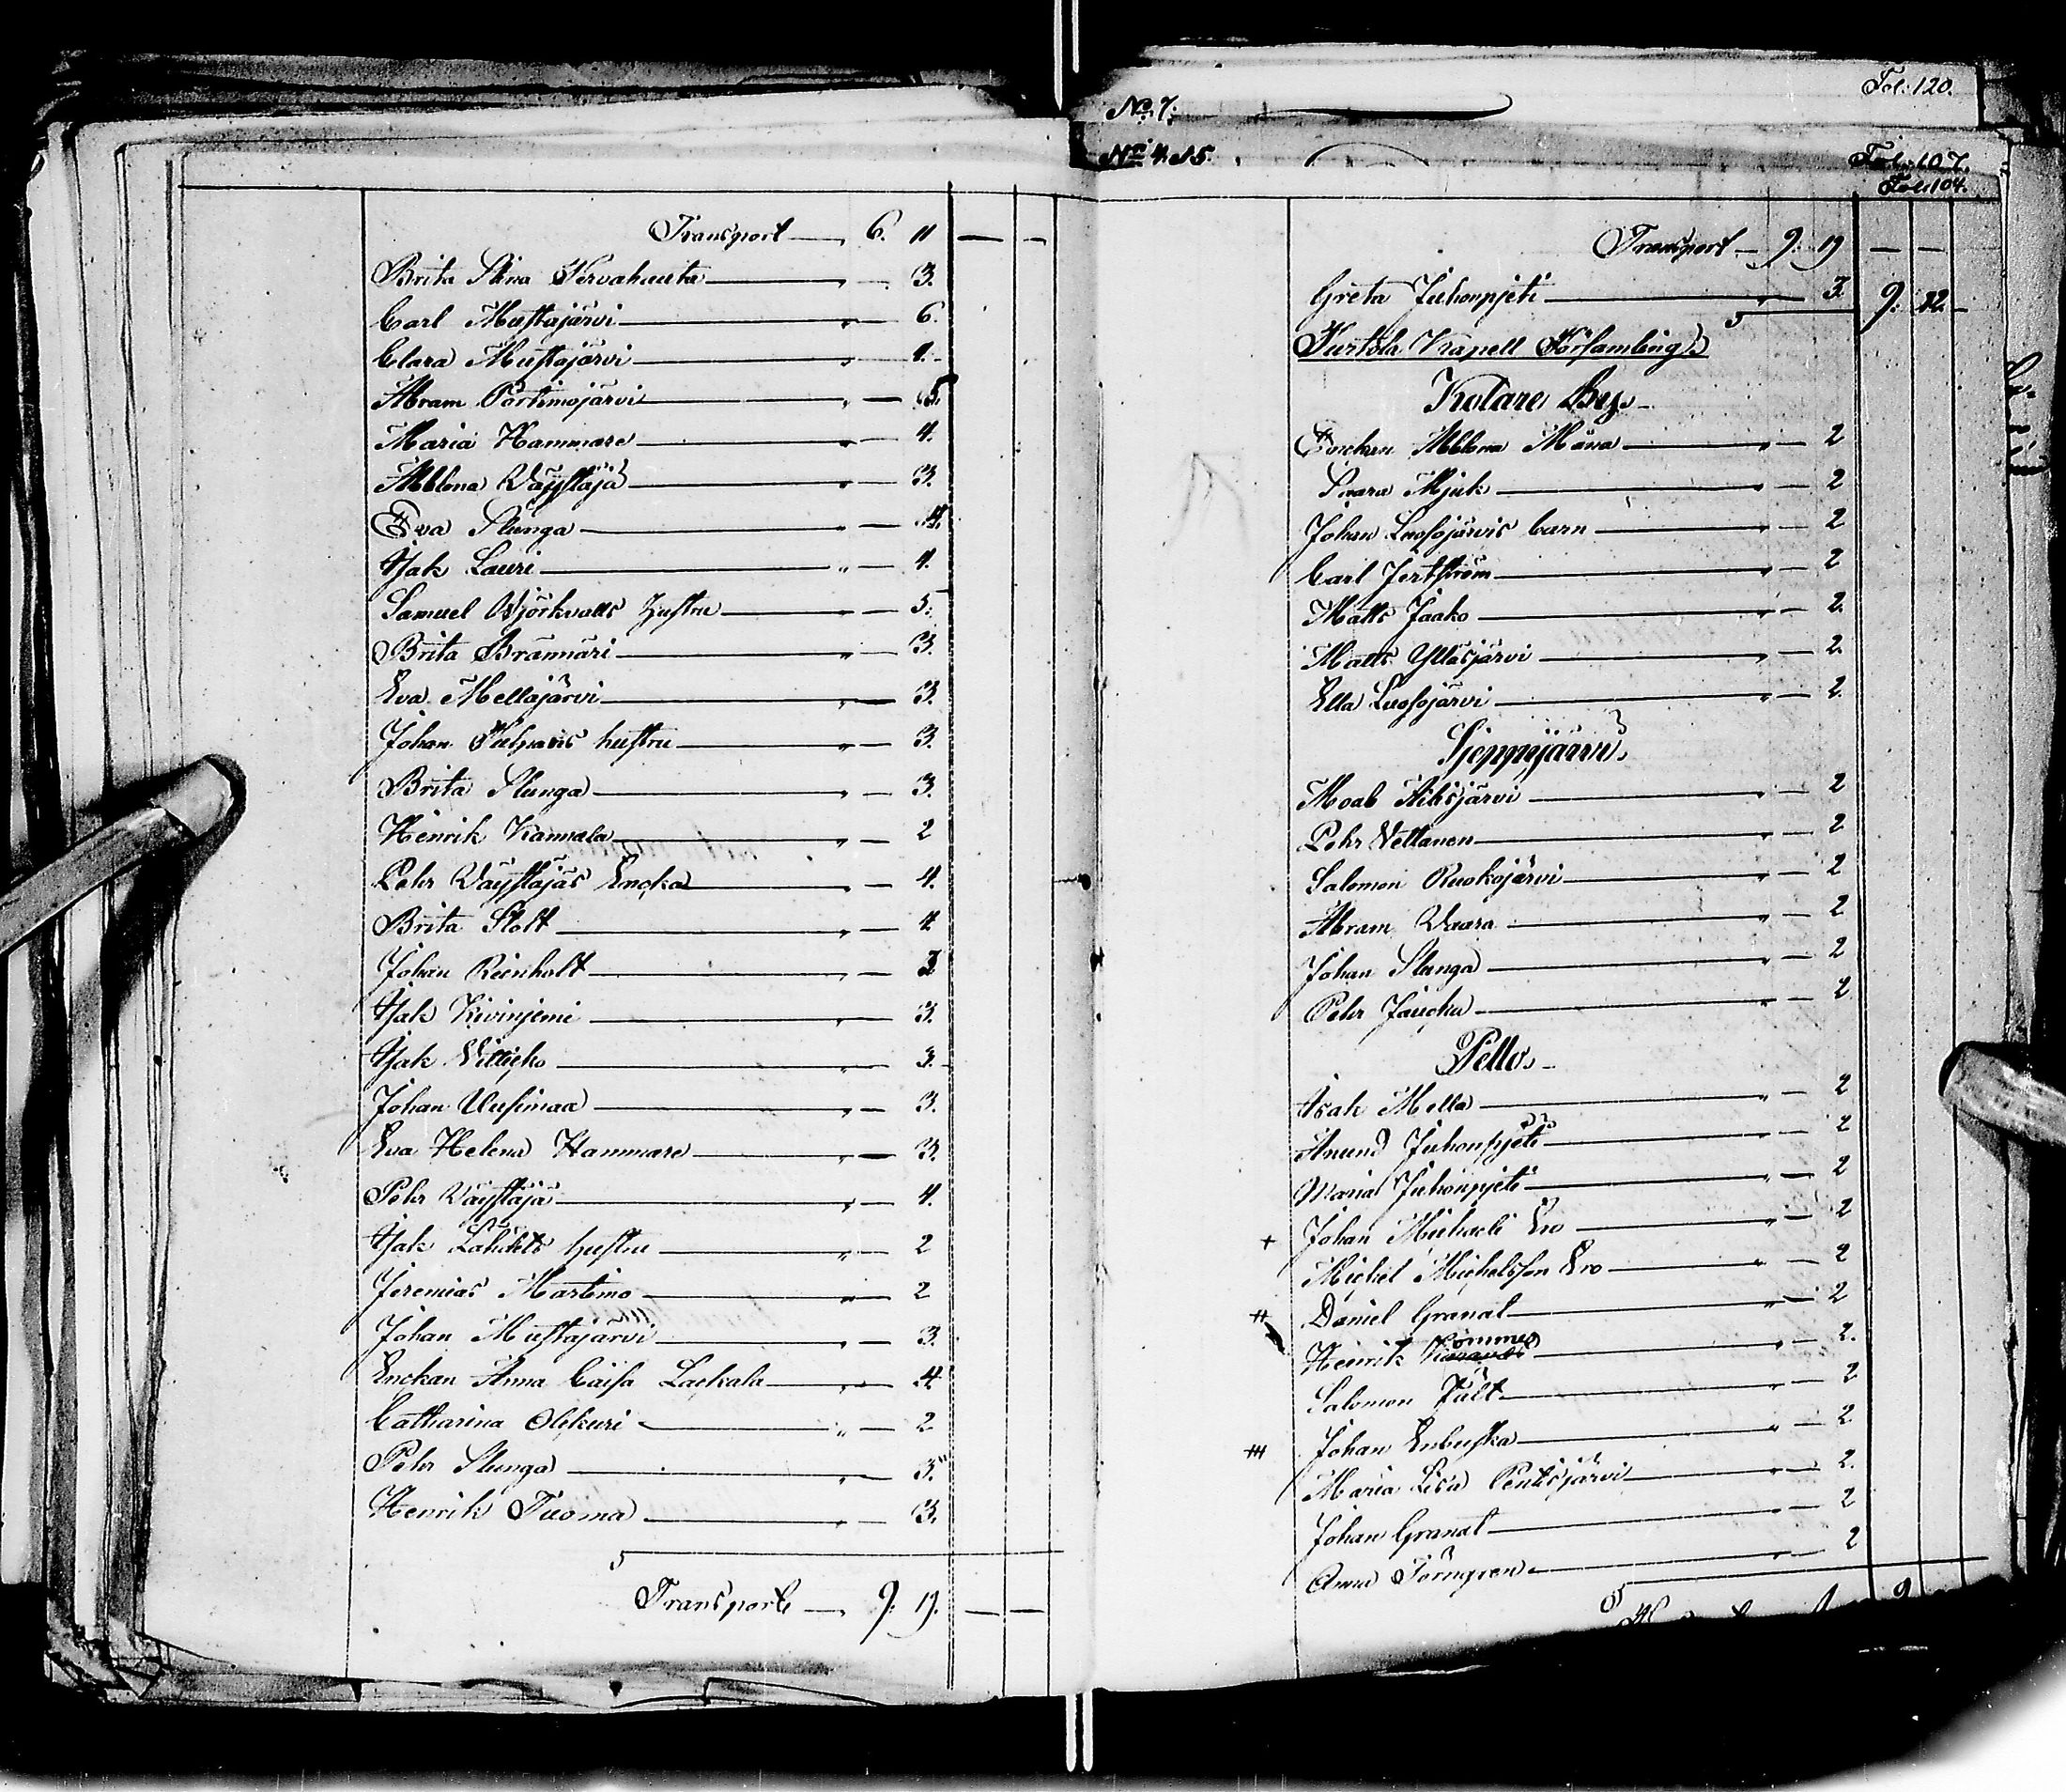 Transport — 6. 11 — —
Brita Stina Tervahauta — " — 3.
Carl Mustajärvi — " — 6.
Clara Mustajärvi — " — 1.
Abram Portimojärvi — " — 5.
Maria Hammare — " — 4.
Ablona Väystäjä — " — 3.
Eva Slunga — " — 4.
Isak Lauri — " — 4.
Samuel Björkvalls hustru — " — 5.
Brita Brännäri — " — 3.
Eva Mellajärvi — " — 3.
Johan hustru — " — 3.
Brita Slunga — " — 3.
Henrik Kannala — " — 2
Pehr Väystäjäs Encka — " — 4.
Brita Stolt — " — 4
Johan Reinholt — " — 3
Isak Kivinjemi — " — 3.
Isak Villicko — " — 3.
Johan Uusimaa — " — 3.
Eva Helena Hammare — " — 3.
Pehr Väystäjä — " — 4.
Isak Lahdets hustru — " — 2
Jeremias Martimo — " — 2
Johan Mustajärvi — " — 3.
Enckan Anna Caisa Lackala — " — 4.
Catharina Olckuri — " — 2
Pehr Slunga — " — 5.
Henrik Tuoma — " — 3.
Transport — 9. 19. — —
No 7.
Fol: 120.
No 4. 15.
Fol: 107.
Fol: 104.
Transport — 9. 19 — —
Greta Juhonpjeti — " — 3. 9. 22 —
Turtola Kapell Församling
Kolare By
Enckan Ablona Mäna — " — 2
Mjuk — " — 2
Johan Luosojärvis barn — " — 2
Carl Jertström — " — 2
Matts Jaako — " — 2.
Matts Ylläsjärvi — " — 2.
Ella Luosojärvi — " — 2.
Sjeppijärvi
Moab Aihsjärvi — " — 2
Pehr Vettanen — " — 2
Salomon Ruokojärvi — " — 2
Abram Vaara — " — 2
Johan Slunga — " — 2
Pehr Jaucku — " — 2
Pello
Isak Mella — " — 2
Anund Juhonpjeti — " — 2
Maria Juhonpjeti — " — 2
+ Johan Michaeli Ero — " — 2
Michel Michelsson Ero — " — 2
++ Daniel Granat — " — 2
Henrik Kommes — " — 2.
Salomon Fält — " — 2
+++ Johan Enbuska — " — 2
Maria Lisa Pentisjärvi — " — 2.
Johan Granat — " — 2
Anna Törngren — " — 2